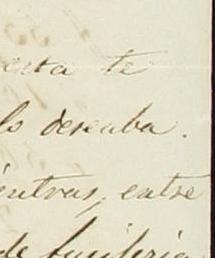 erta te
lo deseaba.
ientras, entre
de